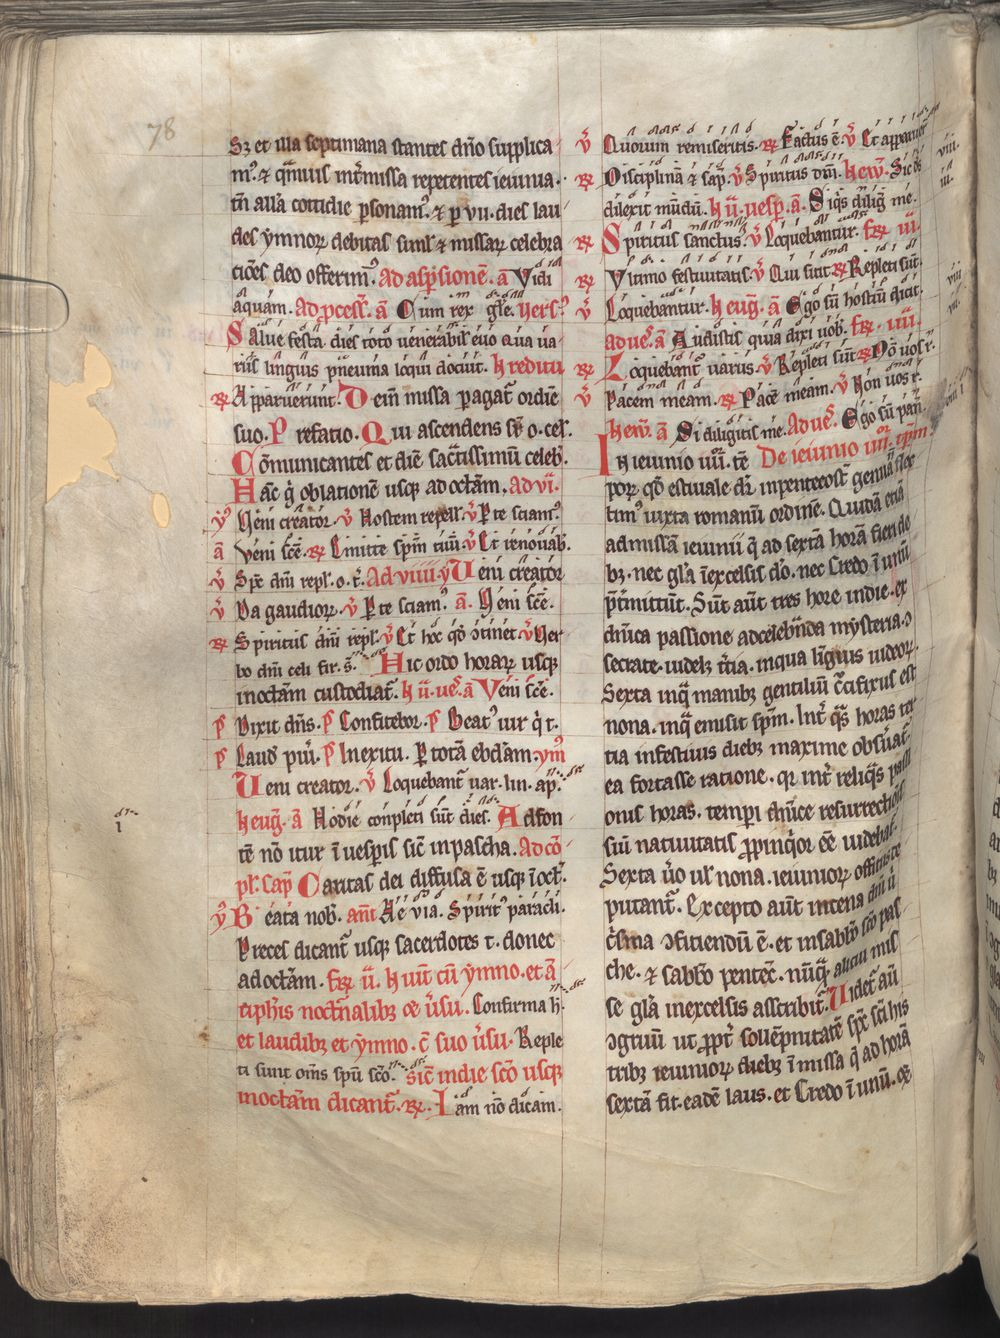 78
Sꝫ et illa septimana stantes dn̄o supplica
m᷒. ⁊ qͣmuis int̄missa repetentes ieiunia.
tn̄ alla cottidie ꝑsonam᷒. ⁊ ꝑ vii. dies lau
des ymnoꝝ debitas simͥl ⁊ missaꝝ celebra
tiōes deo offerim᷒. Ad asꝑsionē. a᷒ Vidi
aquam. Ad ꝓcess̄. ā Cum rex gl̄e. vers᷒
Salue festa dies toto uenerabil̓ euo Qua ua
riis linguis pneuma loqui docuit. In reditu
℟ Apparuerunt. Dein missa ꝑagat᷑ ordīe
suo. Prefatio. Qui ascendens sᷓ o. cel̓.
Cōmunicantes et diē sac̄tissimū celeb̓.
Hāc g̓ oblationē usqꝫ ad octām. Ad vi.
ẏ Veni creātor. ℣ Hostem repell̓. ℣ P te sciam᷒
ā Veni sc̄e. ℟ Emitte sp̄m tuū. ℣ Et renouab̓.
℣ Sp̄c dn̄i repl̓. o. t̓. Ad viiii. ẏ Veni creātor
℣ Da gaudioꝝ. ℣ P te sciam᷒. ā. Veni sc̄e.
℟ Spiritus dn̄i repl̓. ℣ Et hoc qͦd ↄtinet ℣ Ver
bo dn̄i celi fir. s̄. Hic ordo horaꝝ usqꝫ
in octām custodiat᷑. In ii. ves̓. ā Veni sc̄e.
p̄ Dixit dn̄s. p̄ Confitebor. p̄ Beat᷒ uir q̓ t.
p̄ Laud̄ pui᷒. p̄ In exitu. P totā ebdām. ym᷒
Veni creator. ℣ Loquebant᷑ uar. lin. ap̄.
In euḡ. ā Hodie conpleti sūt dies. Ad fon
tē nō itur ī uesꝑis sic̄ in pascha. Ad cō
pl̓. cap̄ Caritas dei diffusa ē usqꝫ ī oct̄.
ẏ Beata nob̄. ant̄ Ae via. Spirit᷒ paracli.
Preces dicant᷑ usqꝫ sacerdotes t. donec
ad octām. fꝝ ii. In uit̄ cū ymno. et ā
triph̓is noct̄nalibꝫ ꝯ ūsu. Confirma h̓.
et laudibꝫ et ẏmno. ꝯ̄ suo ūsu. Reple
ti sunt om̄s spū scō. Sic̄ in die scō usqꝫ
in octām dicant᷑. ℟. Iam nō dicam.
℣ Quorum remiseritis. ℟ Factus ē. ℣ Et apparuer̄
℟ Disciplinā ⁊ sap̄. ℣ Spiritus dn̄i. In ew̄. Sic ds̄
dilexit mūdū. In ii. uesp̄. ā. Siqͥs diligͥ me.
℟ Spiritus sanctus. ℣ Loquebantur. fꝝ iii.
℟ Vltimo festiuitatis. ℣ Qui sitit ℟ Repleti sūt.
℣ Loquebantur. In euḡ. ā Ego sū hostiū dicit.
ad ues̓. ā Audistis quia dixi uob̓. fꝝ. iiii.
℟ Loquebant᷑ uariis. ℣ Repleti sūt ℟ Nō uos r̓.
℣ Pācem meam. ℟ Pācē meam. ℣ Non uos r̓.
In ew̄. ā Si diligitis me. Ad ues̓. Ego sū pan̄
In ieiunio iiii. tē De ieiunio iiiiᵒʳ tp̄m
porꝫ qͦd estiuale dr̄ in pentecost̄ genua flec
tim᷒ iuxta romanū ordinē. Quidā etiā
ad missā ieiunii q̄ ad sextā horā fien de
bꝫ. nec gl̄a ī excelsis dō. nec Credo ī unū
p̄t̄mittūt. Sūt aūt tres hore in die. ex
dn̄ica passione ad celebn̄da mysteria. ↄ
secrate. uidelꝫ t̄tia. in qua lin̄guis iudeoꝝ.
Sexta inq̄ manibꝫ gentiliū c̄cifixus est
nona. inq̄ emisit sp̄m. Int̄ qͣs horas ter
tia in festiuis diebꝫ maxime obsuat᷑.
ea fortasse ratione. qꝛ int̄ reliqͣs passi
onis horas. tempi dn̄ice resurrectiōis
siū natiuitatis ꝓpinqͥor eē uidebat᷑.
Sexta ūo ul̓ nona. ieiunioꝝ officiis te
putant᷑. Excepto aūt in cena dn̄i ū
c̓sma ↄficiendū ē. et in sabb̄o scō pas
che. ⁊ sabb̄o pentec̄. nūqͣ alicui mis
se gl̄a in excelsis asc̓bit᷑. Videt᷑ aū
ↄgruū ut ꝓpt̄ sollēpnitatē sp̄c sc̄i his
tribꝫ ieiunioꝝ diebꝫ ī missa q̄ ad horā
sextā fit. eadē laus. et Credo ī unū. qͤ